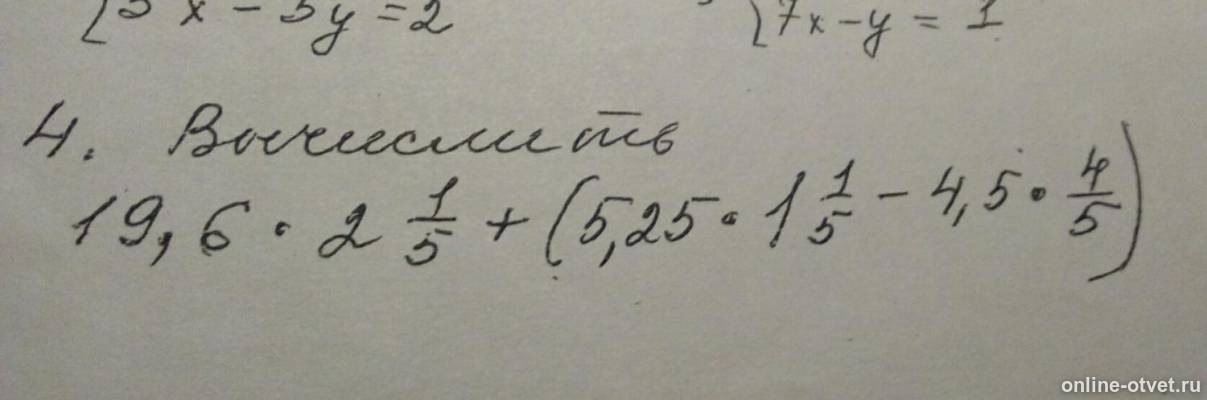 x - 5y = 2
7x - y = 1
4. Вычислить
19,6 · 2 1/5 + (5,25 · 1 1/5 - 4,5 · 4/5)
online-otvet.ru